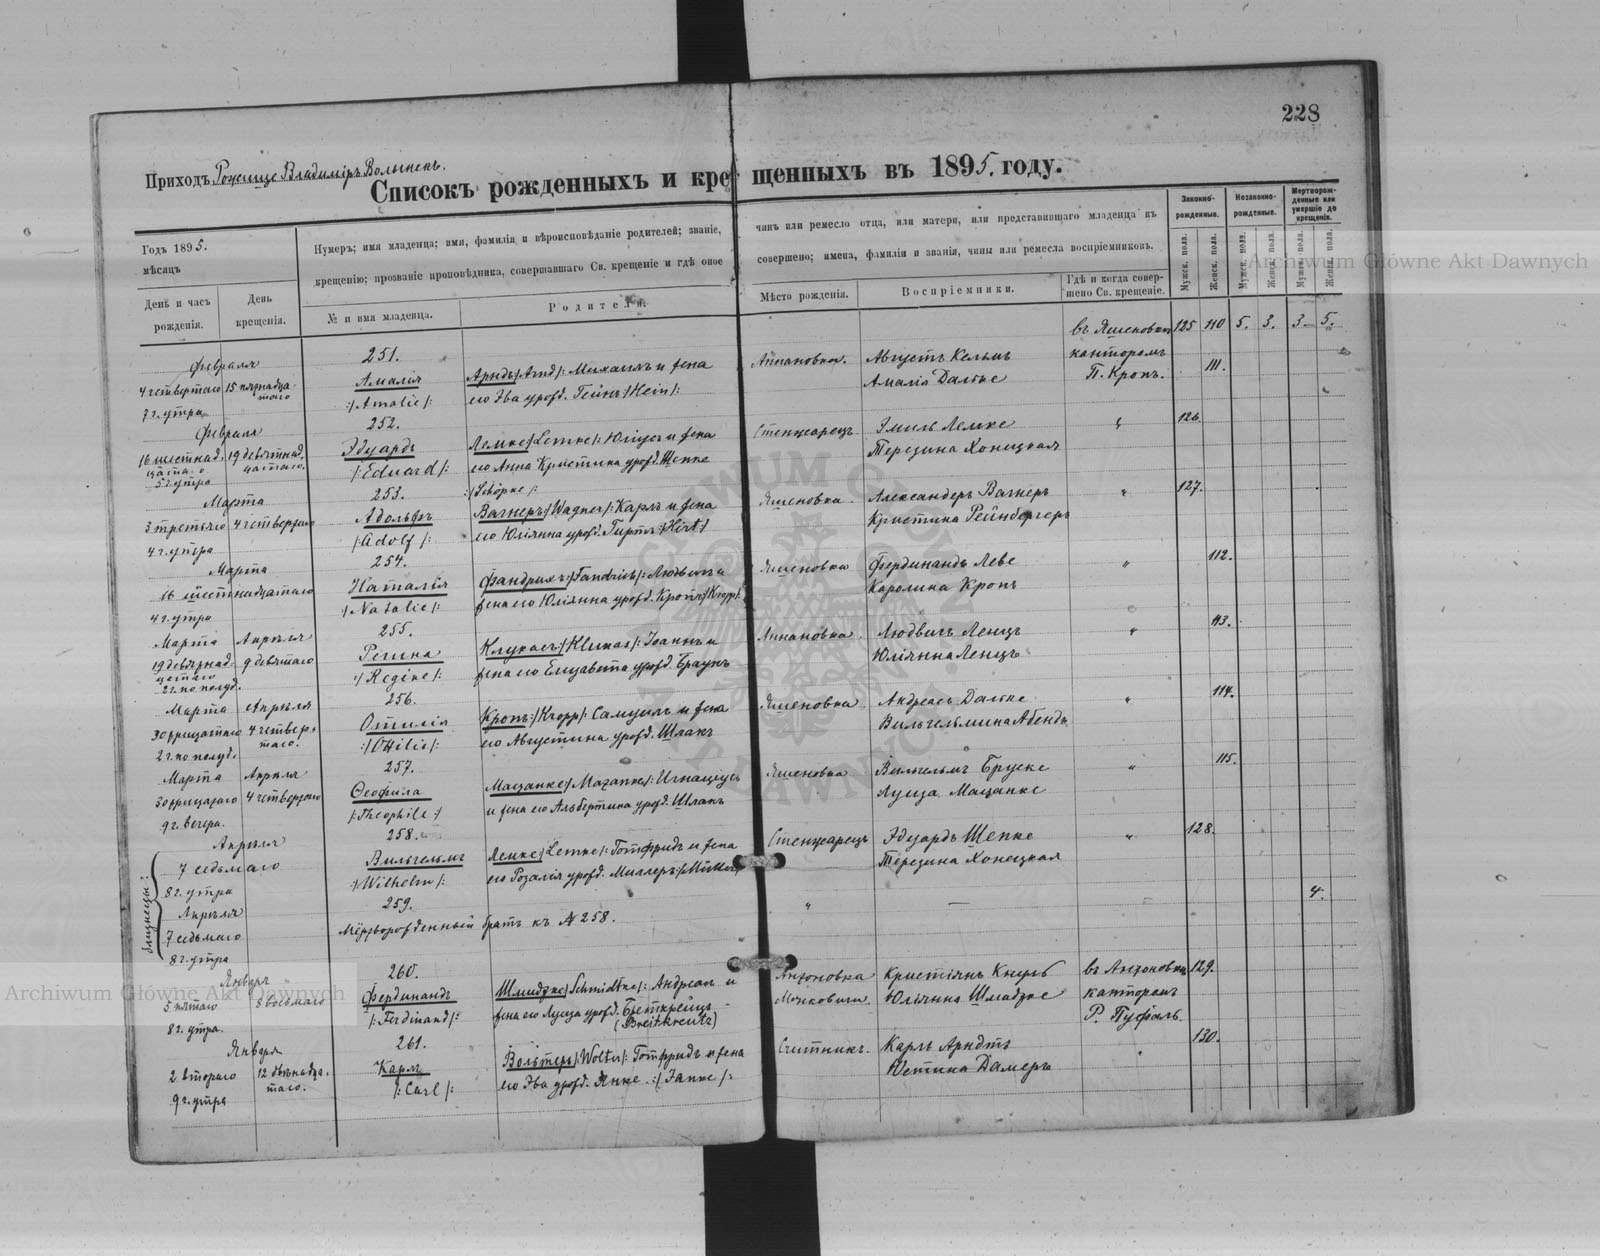 228
Приходъ Рожище Владиміръ Волынскъ.
Списокъ рожденныхъ и крещенныхъ въ 1895. году.
Годъ 1895.
мѣсяцъ
День и часъ рожденія.
День крещенія.
Нумеръ; имя младенца; имя, фамилія и вѣроисповѣданіе родителей; званіе,
чинъ или ремесло отца, или матери, или представившаго младенца къ
крещенію; прозваніе проповѣдника, совершавшаго Св. крещеніе и гдѣ оное
совершено; имена, фамиліи и званія, чины или ремесла воспріемниковъ.
№ и имя младенца.
Родители.
Мѣсто рожденія.
Воспріемники.
Гдѣ и когда совершено Св. крещеніе.
Законно-рожденные.
Незаконно-рожденные.
Мертворожденные или умершіе до крещенія.
Мужск. пола.
Женск. пола.
Мужск. пола.
Женск. пола.
Мужск. пола.
Женск. пола.
въ Яшеновки 125 110 5. 3. 3 5.
Февраля 251. Аннановка. Августъ Кельмъ канторомъ 111.
4 четвертаго 15 пятнадца- Амалія Арндъ /:Arnd/: Михаилъ и жена Амалія Дальке П. Кропъ.
7 г. утра таго :/Amalie/: его Эва урожд. Гейнъ /Hein/:
Февраля 252. Стенжарецъ Эмиль Лемке " 126.
16 шестнад- 19 девятнад- Эдуардъ Лемке /Lemke/: Юліусъ и жена Терезина Хонецкая
цатаго цатаго. /:Eduard/: его Анна Кристина урожд. Шепке
5 г. утра :/Schöpke/:
Марта 253. Яшеновка Александеръ Вагнеръ " 127.
3 третьяго 4 четвертаго Адольфъ Вагнеръ /Wagner/: Карлъ и жена Кристина Рейнбергеръ
4 г. утра /:Adolf/: его Юліянна урожд. Гиртъ /:Hirt:/
Марта 254. Яшеновка Фердинандъ Леве " 112.
16 шестнадцатаго Наталья Фандрихъ :/Fandrich/: Людвигъ и Каролина Кропъ
4 г. утра :/Natalie/: жена его Юліянна урожд. Кропъ /Kropp/:
Марта Апрѣля 255. Аннановка. Людвигъ Ленцъ " 113.
19 девятнад- 9 девятаго Регина Клукасъ :/Klukas/: Іоаннъ и Юліянна Ленцъ
цатаго :/Regine/: жена его Елизавета урожд. Браунъ
2 г. по полуд.
Марта Апрѣля 256. Яшеновка Андреасъ Дальке " 114.
30 тридцатаго 4 четвер- Отилія Кропъ :/Kropp/: Самуилъ и жена Вильгельмина Абендъ
2 г. по полуд. таго. :/Ottilie/: его Августина урожд. Шлакъ
Марта Апрѣля 257. Яшеновка Вильгельмъ Бруске " 115.
30 тридцатаго 4 четвертаго Ѳеофила Мацанке /Mazanke/: Игнаціусъ Луиза Мацанке
9 г. вечера. /:Theophile:/ и жена его Альбертина урожд. Шлакъ
Апрѣля 258. Стенжарецъ Эдуардъ Шепке " 128.
близнецы: 7 седьмаго Вильгельмъ Лемке /Lemke/: Готфридъ и жена Терезина Хонецкая
8 г. утра :/Wilhelm/: его Розалія урожд. Миллеръ /Müller/
Апрѣля 259. " — — 4.
7 седьмаго Мертворожденный братъ къ № 258.
8 г. утра
Январь 260. Антоновка Кристіянъ Кнуль въ Антоновки 129.
5 пятаго 8 восьмаго Фердинандъ Шмидтке /Schmidtke/: Андреасъ и Юліянна Шмидтке канторомъ
8 г. утра. /:Ferdinand/: жена его Луиза урожд. Бреткрейцъ Р. Пуфаль.
(Breitkreutz)
Января 261. Считникъ. Карлъ Арндтъ " 130.
2 втораго 12 двѣнадца- Карлъ Вольтеръ /Wolter/: Готфридъ и жена Юстина Дамеръ
9 г. утра таго. /:Carl/: его Эва урожд. Янке :/Janke/:
Archiwum Główne Akt Dawnych
Archiwum Główne Akt Dawnych